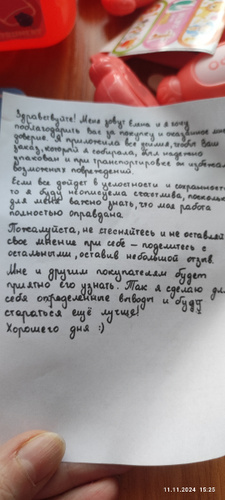 Здравствуйте! Меня зовут Елена и я хочу
поблагодарить вас за покупку и оказанное мне
доверие. Я приложила все усилия, чтобы ваш
заказ, который я собирала, был надежно
упакован и при транспортировке он избежал
возможных повреждений.
Если все дойдет в целостности и сохранности
то я буду неописуемо счастлива, поскольку
для меня важно знать, что моя работа
полностью оправдана
Пожалуйста, не стесняйтесь и не оставляй
свое мнение при себе – поделитесь с
остальными, оставив небольшой отзыв.
Мне и другим покупателям будет
приятно его узнать. Так я сделаю для
себя определенные выводы и буду
стараться ещё лучше!
Хорошего дня :)
11.11.2024 15:25